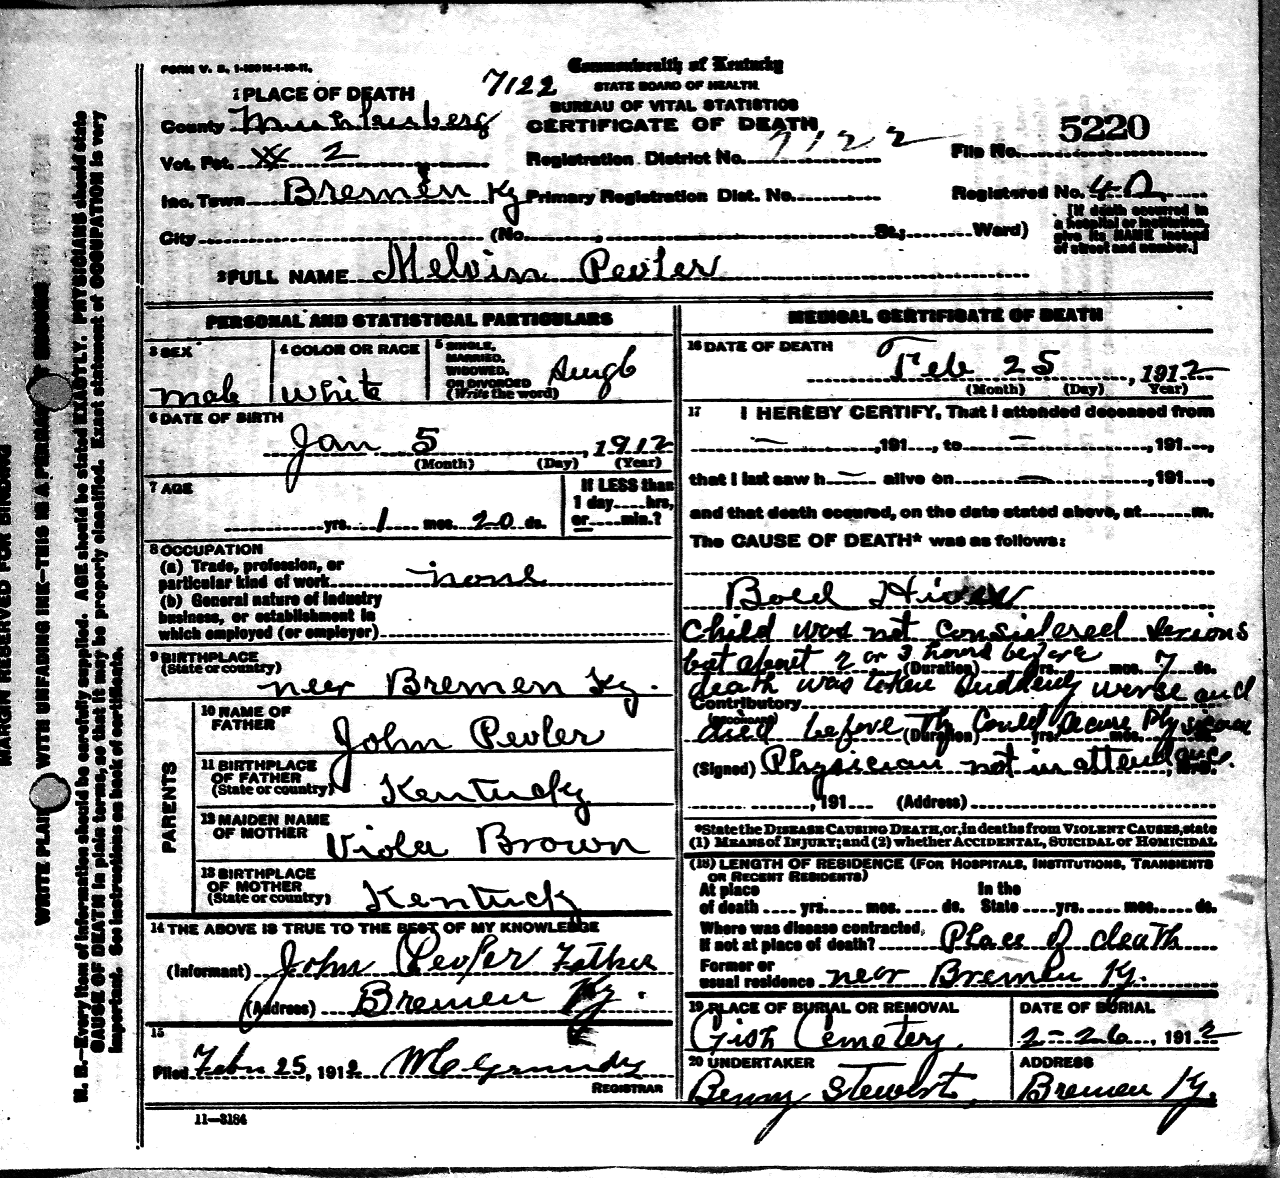 FORM V. S. 1-100M-1-10-11.
Commonwealth of Kentucky
STATE BOARD OF HEALTH
BUREAU OF VITAL STATISTICS
CERTIFICATE OF DEATH
7122
1 PLACE OF DEATH
County Muhlenberg
Vot. Pct. 2
Registration District No. 7122
File No. 5220
Inc. Town Bremen Ky
Primary Registration Dist. No.
Registered No. 40
City (No. , St.; Ward)
[If death occurred in a hospital or institution, give its NAME instead of street and number.]
2 FULL NAME Melvin Pevler
PERSONAL AND STATISTICAL PARTICULARS
3 SEX male
4 COLOR OR RACE White
5 SINGLE, MARRIED, WIDOWED, OR DIVORCED (Write the word) Singl
6 DATE OF BIRTH
Jan 5, 1912
(Month) (Day) (Year)
7 AGE
yrs. 1 mos. 20 ds.
If LESS than 1 day hrs, or min.?
8 OCCUPATION
(a) Trade, profession, or particular kind of work none
(b) General nature of industry business, or establishment in which employed (or employer)
9 BIRTHPLACE (State or country) near Bremen Ky.
PARENTS
10 NAME OF FATHER John Pevler
11 BIRTHPLACE OF FATHER (State or country) Kentucky
12 MAIDEN NAME OF MOTHER Viola Brown
13 BIRTHPLACE OF MOTHER (State or country) Kentucky
14 THE ABOVE IS TRUE TO THE BEST OF MY KNOWLEDGE
(Informant) John Pevler Father
(Address) Bremen Ky.
15
Filed Febr 25, 1912 W C Grundy
REGISTRAR
11—3184
MEDICAL CERTIFICATE OF DEATH
16 DATE OF DEATH
Feb 25, 1912
(Month) (Day) (Year)
17 I HEREBY CERTIFY, That I attended deceased from
— ,191 , to — 191 ,
that I last saw h — alive on — , 191 ,
and that death occured, on the date stated above, at m.
The CAUSE OF DEATH* was as follows:
Bold Hives
Child was not considered serious
but about 2 or 3 hours before
(Duration) yrs. mos. 7 ds.
death was taken suddenly worse and
Contributory (SECONDARY)
died before they could secure Physician
(Duration) yrs. mos. ds.
(Signed) Physician not in attendance.
, 191 (Address)
*State the DISEASE CAUSING DEATH, or, in deaths from VIOLENT CAUSES, state
(1) MEANS OF INJURY; and (2) whether ACCIDENTAL, SUICIDAL or HOMICIDAL
(18) LENGTH OF RESIDENCE (FOR HOSPITALS, INSTITUTIONS, TRANSIENTS OR RECENT RESIDENTS)
At place of death yrs. mos. ds. In the State yrs. mos. ds.
Where was disease contracted, If not at place of death? Place of death
Former or usual residence near Bremen Ky.
19 PLACE OF BURIAL OR REMOVAL Gish Cemetery.
DATE OF BURIAL 2-26, 1912
20 UNDERTAKER Benny Stewart
ADDRESS Bremen Ky.
MARGIN RESERVED FOR BINDING
N. B.—Every item of information should be carefully supplied. AGE should be stated EXACTLY. PHYSICIANS should state
CAUSE OF DEATH in plain terms, so that it may be properly classified. Exact statement of OCCUPATION is very
important. See instructions on back of certificate.